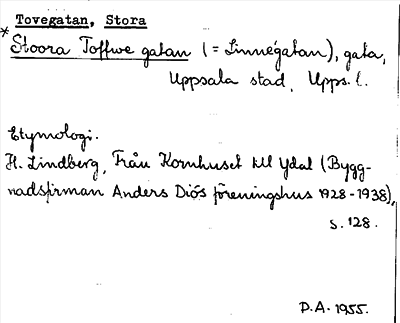 Tovegatan, Stora
* Stoora Toffwe gatan (= Linnégatan), gata,
Uppsala stad, Upps. l.
Etymologi.
H. Lindberg, Från Kornhuset till Ydal (Bygg-
nadsfirman Anders Diös föreningshus 1928-1938),
s. 128.
D.A. 1955.